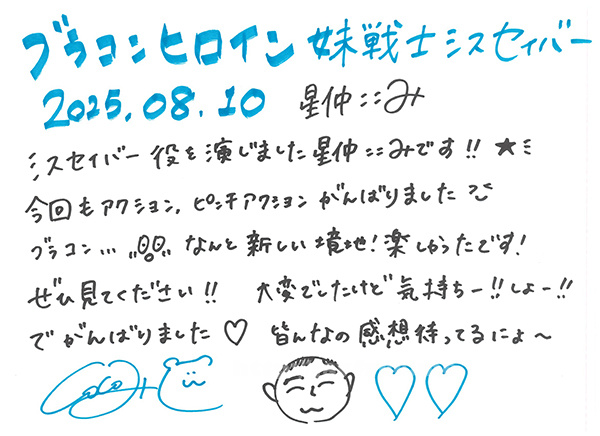 ブラコンヒロイン 妹戦士ミスセイバー
2025.08.10 星仲ここみ
ミスセイバー役を演じました星仲ここみです!!★ミ
今回もアクション,ピンチアクションがんばりました
ブラコン… なんと新しい境地!楽しかったです!
ぜひ見てください!! 大変でしたけど気持ちー!!しょー!!
でがんばりました♡ 皆んなの感想待ってるによ〜
♡♡